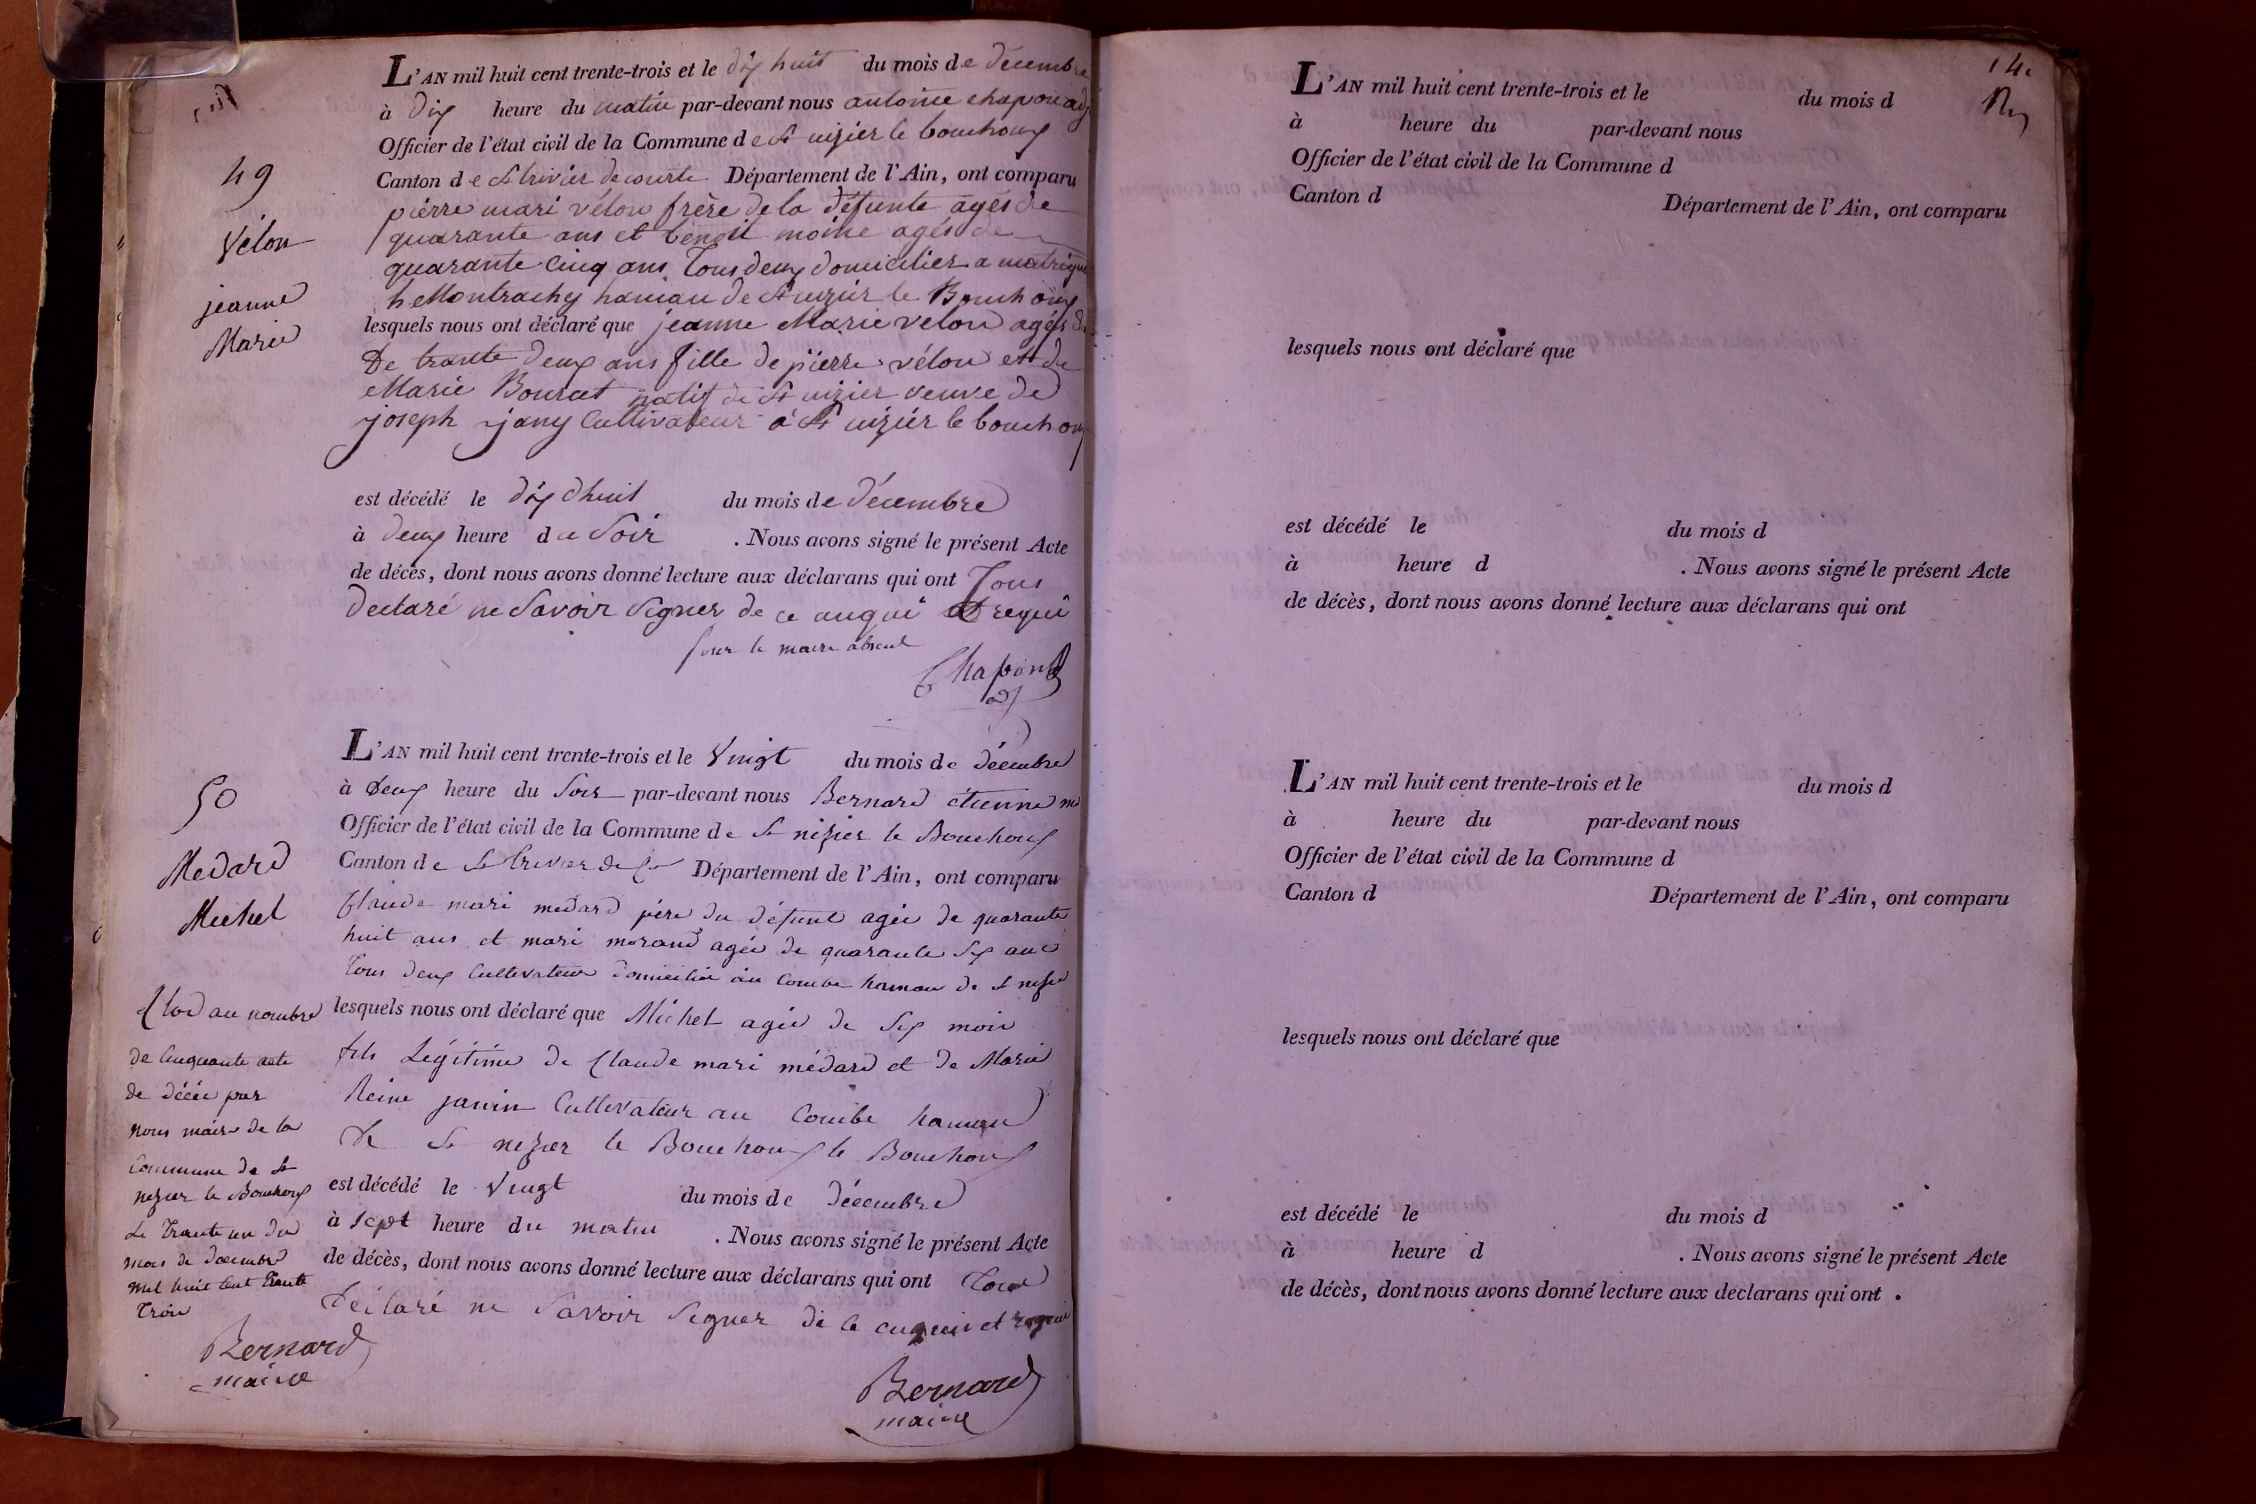 49
Vélon
jeanne
Marie
L'AN mil huit cent trente-trois et le dix huit du mois de décembre
à dix heure du matin par-devant nous antoine chapon adj
Officier de l'état civil de la Commune de St nizier le bouchoux
Canton de St trivier de courte Département de l'Ain, ont comparu
pierre mari vélon frère de la défunte agés de
quarante ans et benoit moine agés de
quarante cinq ans Tous deux domicilier a
hameau de St nizier le Bouchoux
lesquels nous ont déclaré que jeanne Marie velon agés de
De trante deux ans fille de pierre vélon et de
Marie Bourcet natif de St nizier veuve de
joseph jany Cultivateur à St nizier le bouchoux
est décédé le dix dhuit du mois de décembre
à deux heure du Soir . Nous avons signé le présent Acte
de décès, dont nous avons donné lecture aux déclarans qui ont Tous
declaré ne Savoir Signer de ce anqui et requi
pour le maire absent
Chapon
adj
50
Medard
Michel
L'AN mil huit cent trente-trois et le Vingt du mois de décembre
à Deux heure du Soir par-devant nous Bernard étienne m
Officier de l'état civil de la Commune de St nizier le Bouchoux
Canton de St trivier de Département de l'Ain, ont comparu
Claude mari medard père du défunt agée de quarante
huit ans et mari morand agée de quarante Six ans
Tous deux Cultivateur domicilié au Combe hamau de St nizier
lesquels nous ont déclaré que Michel agée de Six mois
fils Légitime de Claude mari médard et de Marie
Reine janin Cultivateur au Combe hamau
De St nizier le Bouchoux le Bouchoux
est décédé le Vingt du mois de décembre
à sept heure du matin . Nous avons signé le présent Acte
de décès, dont nous avons donné lecture aux déclarans qui ont Tous
déclaré ne Savoir Signer de ce enquis et requis
Bernard
maire
Clos au nombre
de Cinquante acte
de décée par
nous maire de la
Commune de St
nizier le Bouchoux
Le Trante un du
mois de decembre
mil huit Cent Trante
Trois
Bernard
maire
L'AN mil huit cent trente-trois et le du mois d
à heure du par-devant nous
Officier de l'état civil de la Commune d
Canton d Département de l'Ain, ont comparu
lesquels nous ont déclaré que
est décédé le du mois d
à heure d . Nous avons signé le présent Acte
de décès, dont nous avons donné lecture aux déclarans qui ont
L'AN mil huit cent trente-trois et le du mois d
à heure du par-devant nous
Officier de l'état civil de la Commune d
Canton d Département de l'Ain, ont comparu
lesquels nous ont déclaré que
est décédé le du mois d
à heure d . Nous avons signé le présent Acte
de décès, dont nous avons donné lecture aux declarans qui ont .